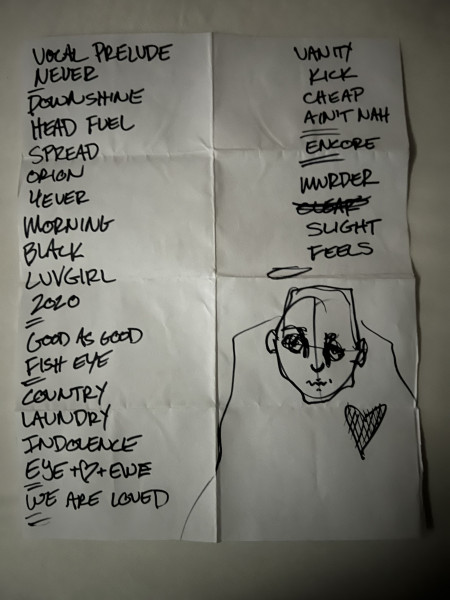 VOCAL PRELUDE
NEVER
DOWNSHINE
HEAD FUEL
SPREAD
ORION
4EVER
MORNING
BLACK
LUVGIRL
2020
GOOD AS GOOD
FISH EYE
COUNTRY
LAUNDRY
INDOLENCE
EYE + ♡ + EWE
WE ARE LOVED
VANITY
KICK
CHEAP
AIN'T NAH
ENCORE
MURDER
SLIGHT
FEELS